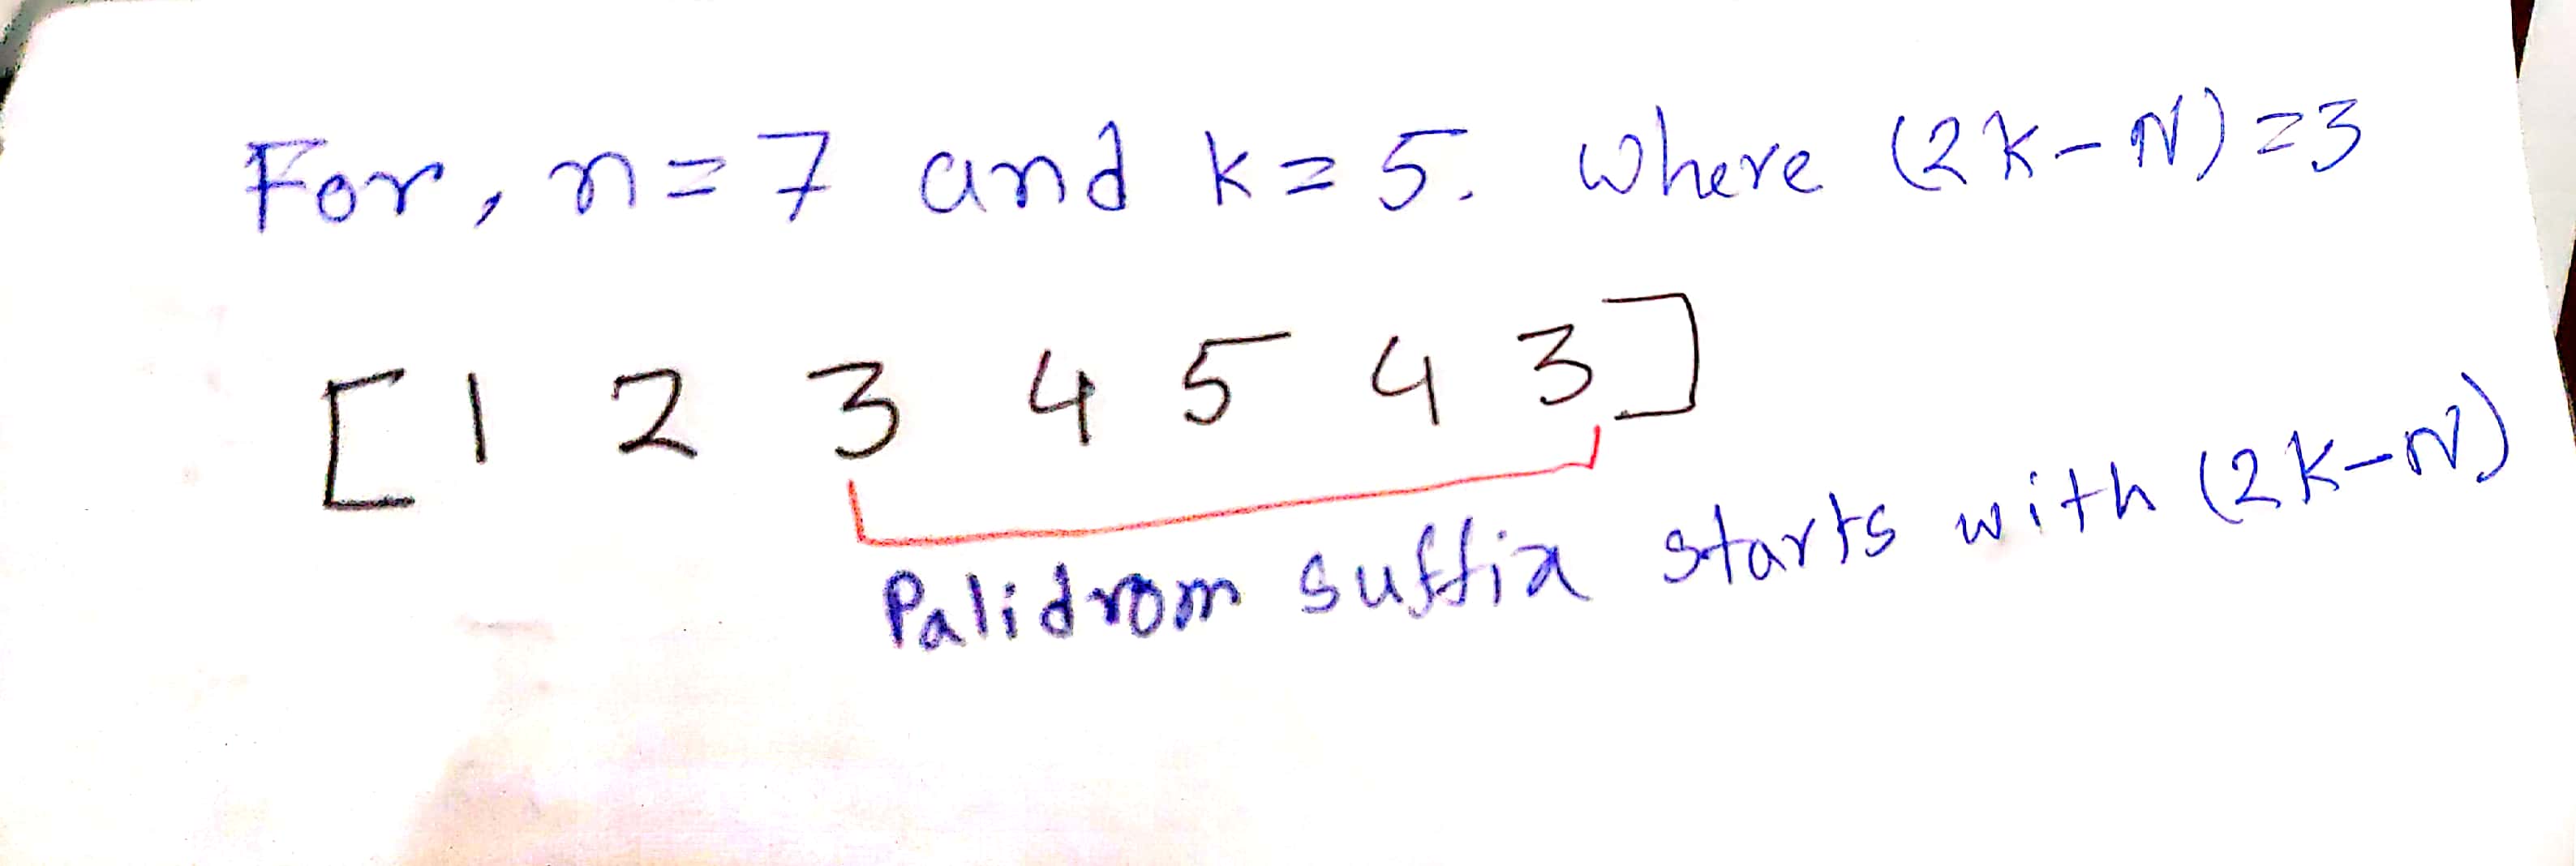 For, n=7 and k=5. where (2K-N)=3
[1 2 3 4 5 4 3]
Palidrom suffix starts with (2K-N)